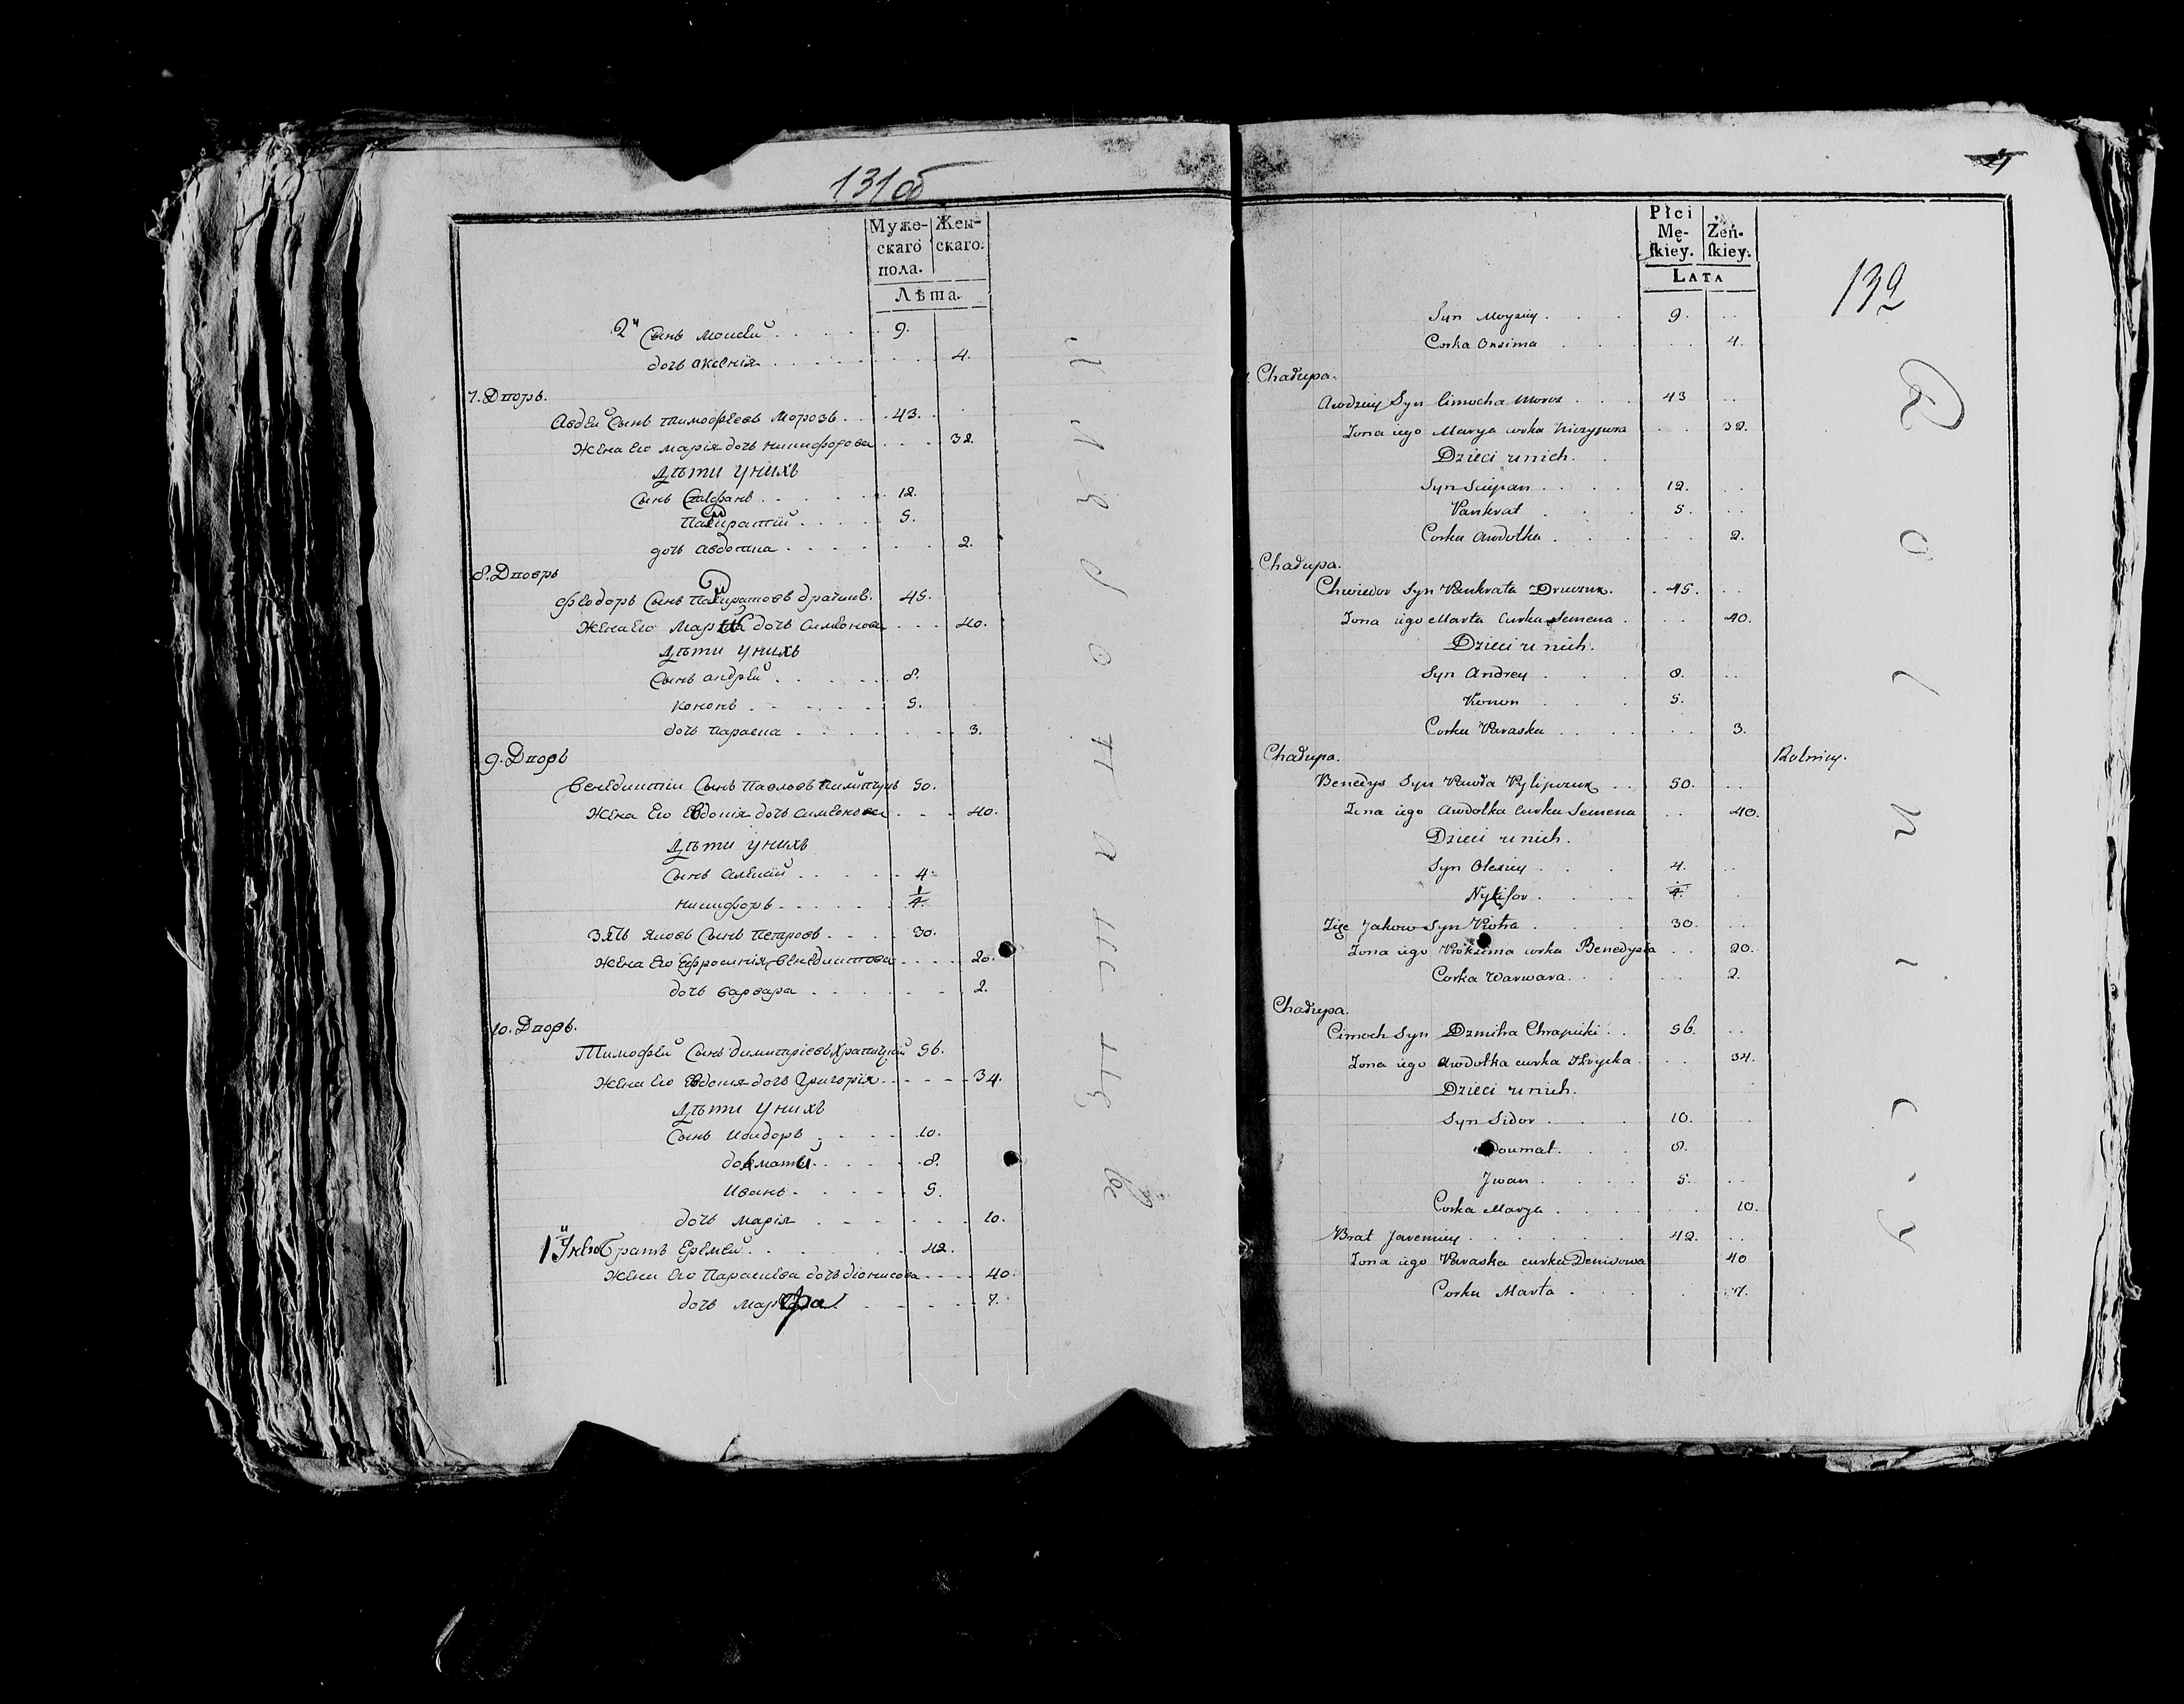 131об
Муже-
скаго
пола.
Жен-
скаго.
Лѣта.
2й Сынъ Моисей . . . 9.
дочь Аксенія . . . 4.
7. Дворъ.
Авдей Сынъ Тимофѣевъ Морозъ . . 43.
Жена Его Марія дочь Никифорова . . . 32.
Дѣти У нихъ
Сынъ Стефанъ . . . 12.
Панкратій . . . 5.
дочь Авдотиа . . . 2.
8. Дворъ
Феодоръ Сынъ Панкратовъ Драчикъ. 45.
Жена Его Марфа дочь Симеонова . . . 40.
Дѣти У нихъ
Сынъ Андрей . . . 8.
Кононъ . . . 5.
дочь Параска . . . 3.
9. Дворъ
Венедиктій Сынъ Павловъ Пилипчукъ 50.
Жена Его Евдокія дочь Симеонова . . . 40.
Дѣти У нихъ
Сынъ Алексій . . . 4.
Никифоръ . . . 1/4.
Зять Яковъ Сынъ Петровъ . . . 30.
Жена Его Ефросинія Венедиктова . . . 20.
дочь Варвара . . . 2.
10. Дворъ.
Тимофей Сынъ Димитріевъ Храпицкій 56.
Жена Его Евдокія дочь Григорія . . . 34.
Дѣти У нихъ
Сынъ Исидоръ . . . 10.
. . . 8.
Иванъ . . . 5.
дочь Марія . . . 10.
1й У него Братъ Еремей . . . 42.
Жена Его Параскева дочь Діонисова . . . 40.
дочь Марфа . . . 7.
Płci
Mę-
ſkiey.
Żeń-
ſkiey.
Lata
132
Syn Moyziey . . . 9.
Corka Oxsima . . . 4.
Chałupa.
Awdziey Syn Cimocha Moroz . . . 43
Żona iego Marya curka Niczypora . . . 32.
Dzieci u nich.
Syn Sciepan . . . 12.
Pankrat . . . 5.
Corka Awdotka . . . 2.
Chałupa.
Chwiedor Syn Pankrata Draczuk. . 45.
Żona iego Marta Curka Semena . . . 40.
Dzieci u nich.
Syn Andrey . . . 8.
Konon . . . 5.
Corka Paraska . . . 3.
Chałupa.
Rolnicy.
Benedys Syn Pawła Pylipczuk . . 50.
Żona iego Awdotka Curka Semena . . 40.
Dzieci u nich.
Syn Olexiey . . . 4.
Nykifor . . . 1/4.
Zięć Jakow Syn Piotra . . . 30.
Żona iego Proksima curka Benedysia . . 20.
Corka Warwara . . . 2.
Chałupa.
Cimoch Syn Dzmitra Chrapicki . . 56.
Żona iego Awdotka curka Hrycka . . . 34.
Dzieci u nich.
Syn Sidor . . . 10.
Doumat . . . 8.
Jwan . . . 5.
Corka Marya . . . 10.
Brat Jaremiey . . . 42.
Żona iego Paraska curka Denisowa 40
Corka Marta . . . 7.